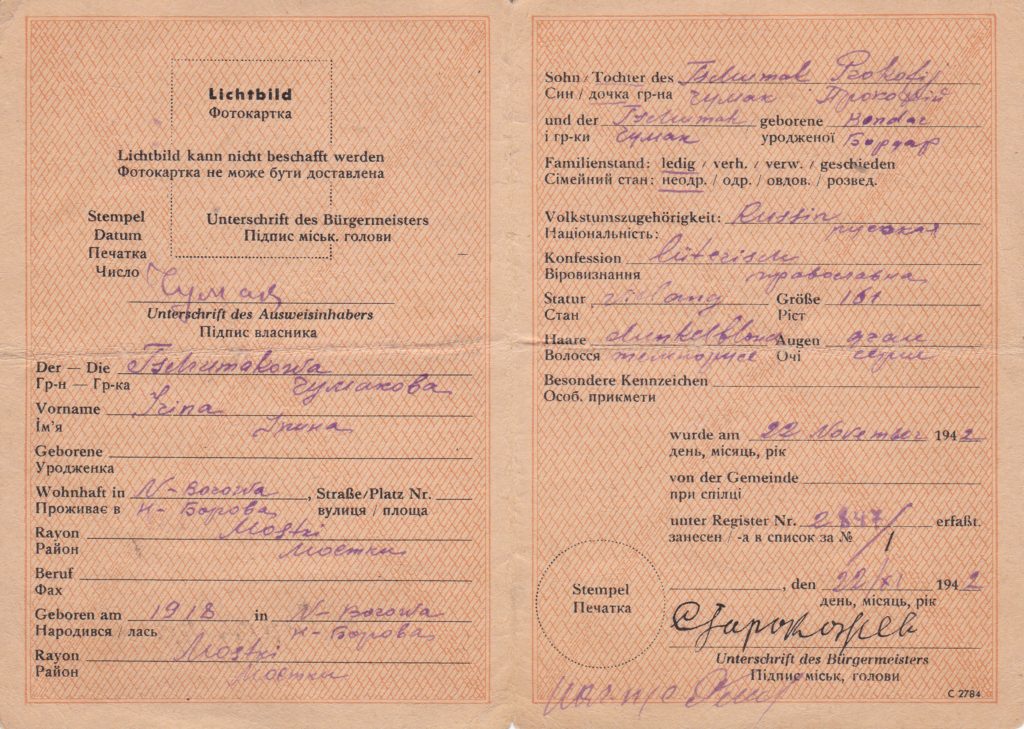 Lichtbild
Фотокартка
Lichtbild kann nicht beschafft werden
Фотокартка не може бути доставлена
Stempel
Datum
Печатка
Число
Unterschrift des Bürgermeisters
Підпис міськ. голови
Чумак
Unterschrift des Ausweisinhabers
Підпис власника
Der — Die Tschumakowa
Гр-н — Гр-ка Чумакова
Vorname Irina
Ім'я Ірина
Geborene
Уродженка
Wohnhaft in N-Borowa, Straße/Platz Nr.
Проживає в Н-Борова вулиця / площа
Rayon Mostki
Район Мостки
Beruf
Фах
Geboren am 1918 in N-Borowa
Народився / лась Н-Борова
Rayon Mostki
Район Мостки
Sohn / Tochter des Tschumak Prokofij
Син / дочка гр-на Чумак Прокофій
und der Tschumak geborene Bondar
і гр-ки Чумак уродженої Бондар
Familienstand: ledig / verh. / verw. / geschieden
Сімейний стан: неодр. / одр. / овдов. / розвед.
Volkstumszugehörigkeit: Russin
Національність: русская
Konfession
Віровизнання православна
Statur Größe 161
Стан Ріст
Haare dunkelblond Augen grau
Волосся темнорусе Очі серии
Besondere Kennzeichen
Особ. прикмети
wurde am 22 November 1942
день, місяць, рік
von der Gemeinde
при спілці
unter Register Nr. 2847/1 erfaßt.
занесен / -а в список за №
Stempel
Печатка
, den 22/XI 1942
день, місяць, рік
Unterschrift des Bürgermeisters
Підпис міськ. голови
C 2784